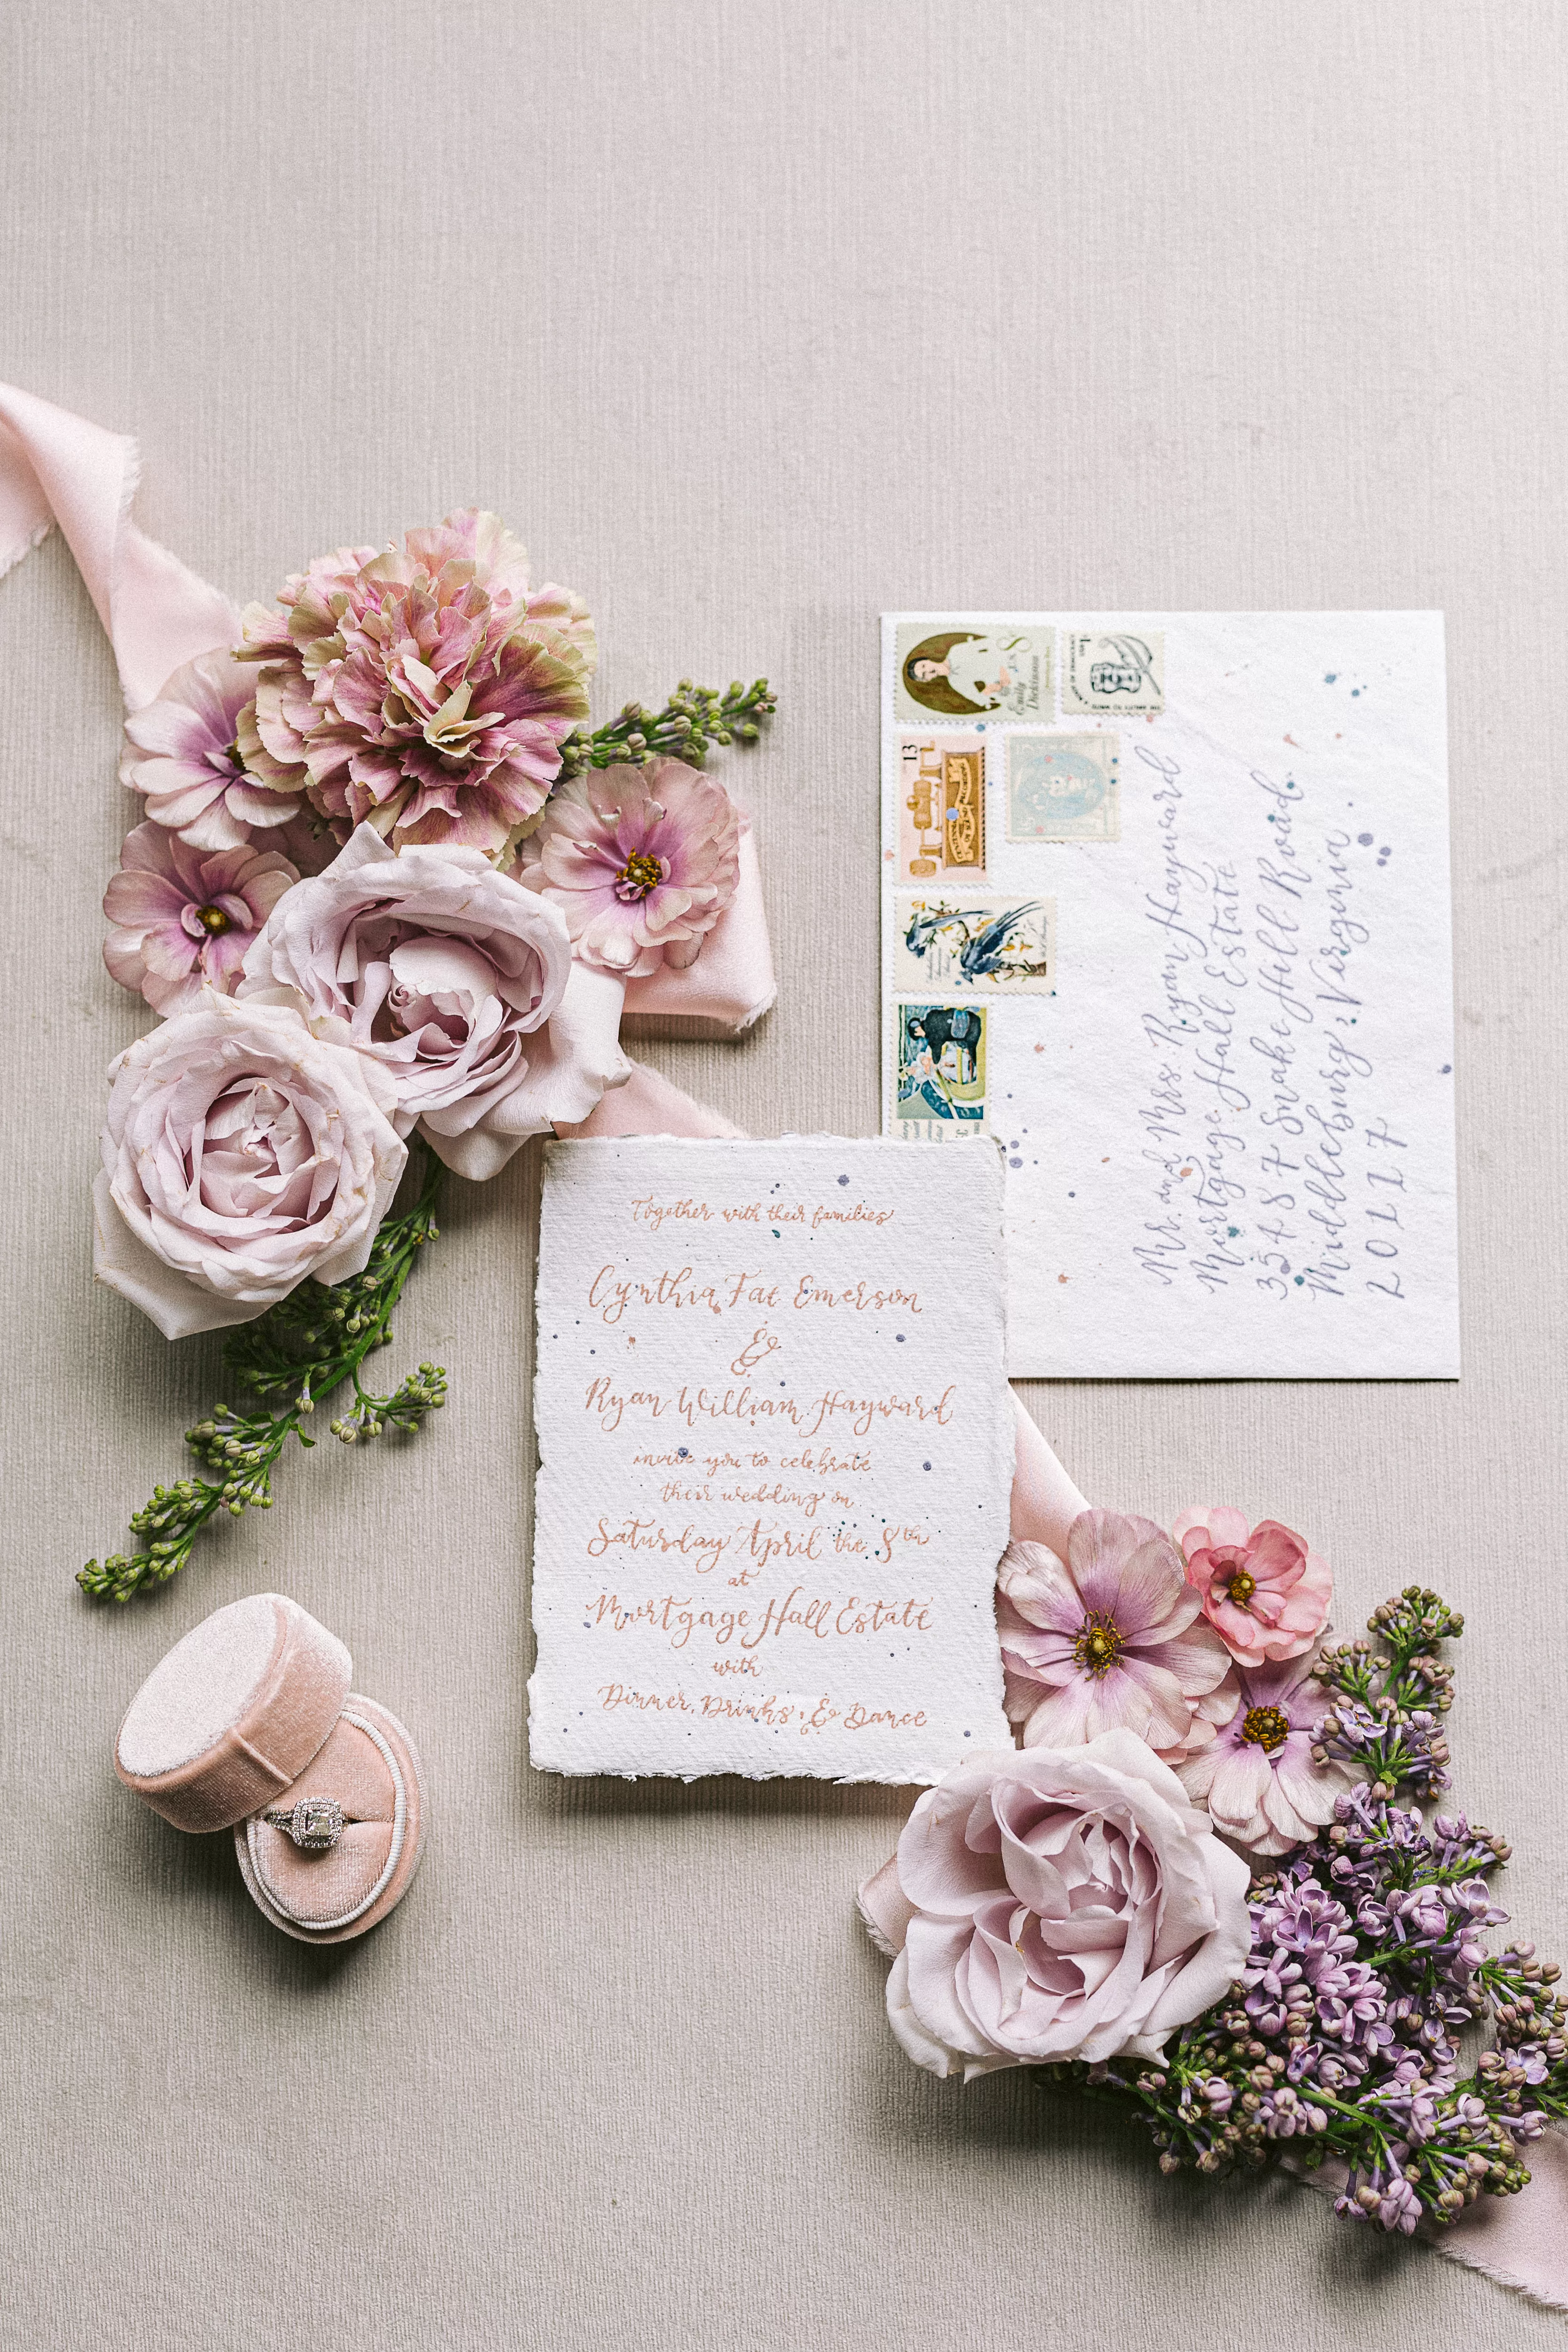 Together with their families
Cynthia Fae Emerson
&
Ryan William Hayward
invite you to celebrate
their wedding on
Saturday April the 8th
at
Mortgage Hall Estate
with
Dinner, Drinks, & Dance
Mr. and Mrs. Ryan Hayward
Mortgage Hall Estate
35487 Snake Hill Road
Middleburg, Virginia
20117
Emily
Dickinson
8
US
13